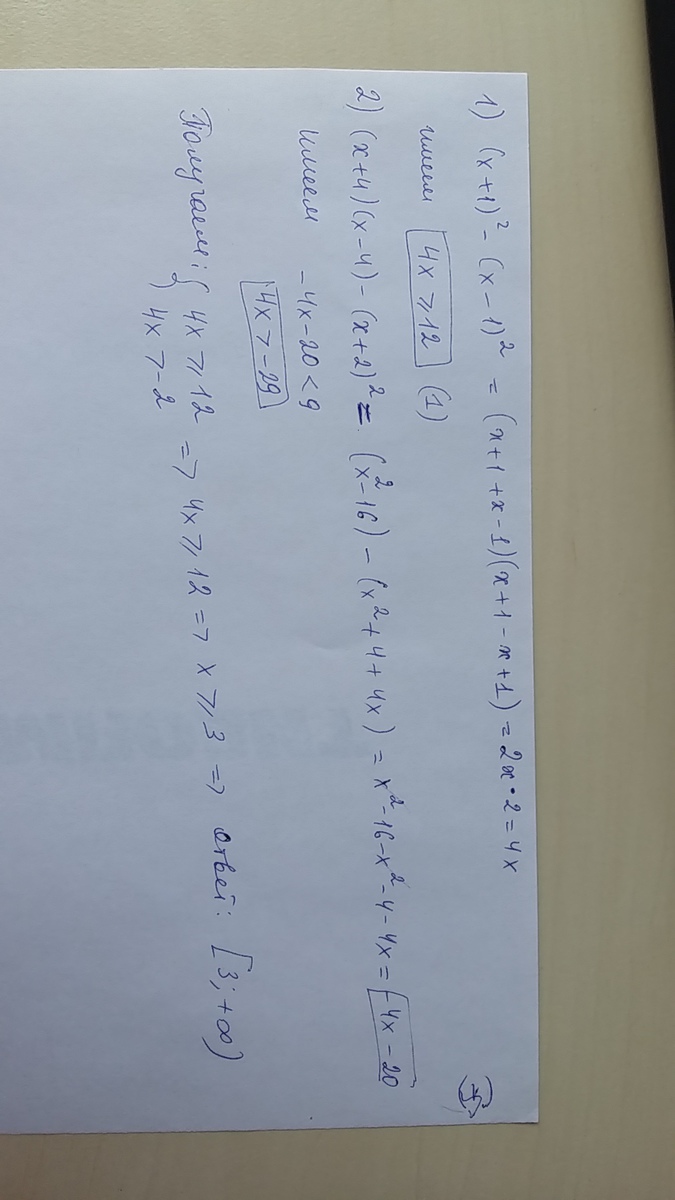 1) (x+1)² - (x-1)² = (x+1+x-1)(x+1-x+1) = 2x·2 = 4x
имеем 4x ⩾ 12 (1)
2) (x+4)(x-4) - (x+2)² = (x²-16) - (x²+4+4x) = x²-16-x²-4-4x = -4x-20
имеем -4x-20 < 9
4x > -29
Получаем: { 4x ⩾ 12 => 4x ⩾ 12 => x ⩾ 3 => ответ: [3; +∞)
4x > -2